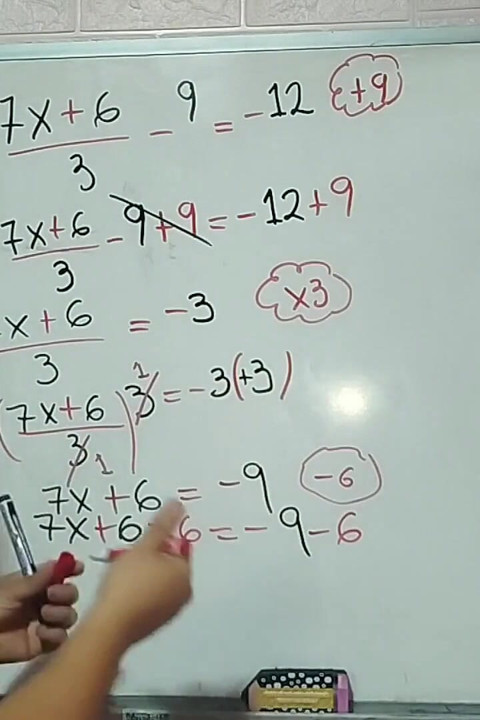 (7x+6)/3 - 9 = -12 +9
(7x+6)/3 - 9+9 = -12+9
x+6/3 = -3 x3
((7x+6)/3) 3 1 = -3(+3)
1
7x+6 = -9 -6
7x+6-6 = -9-6